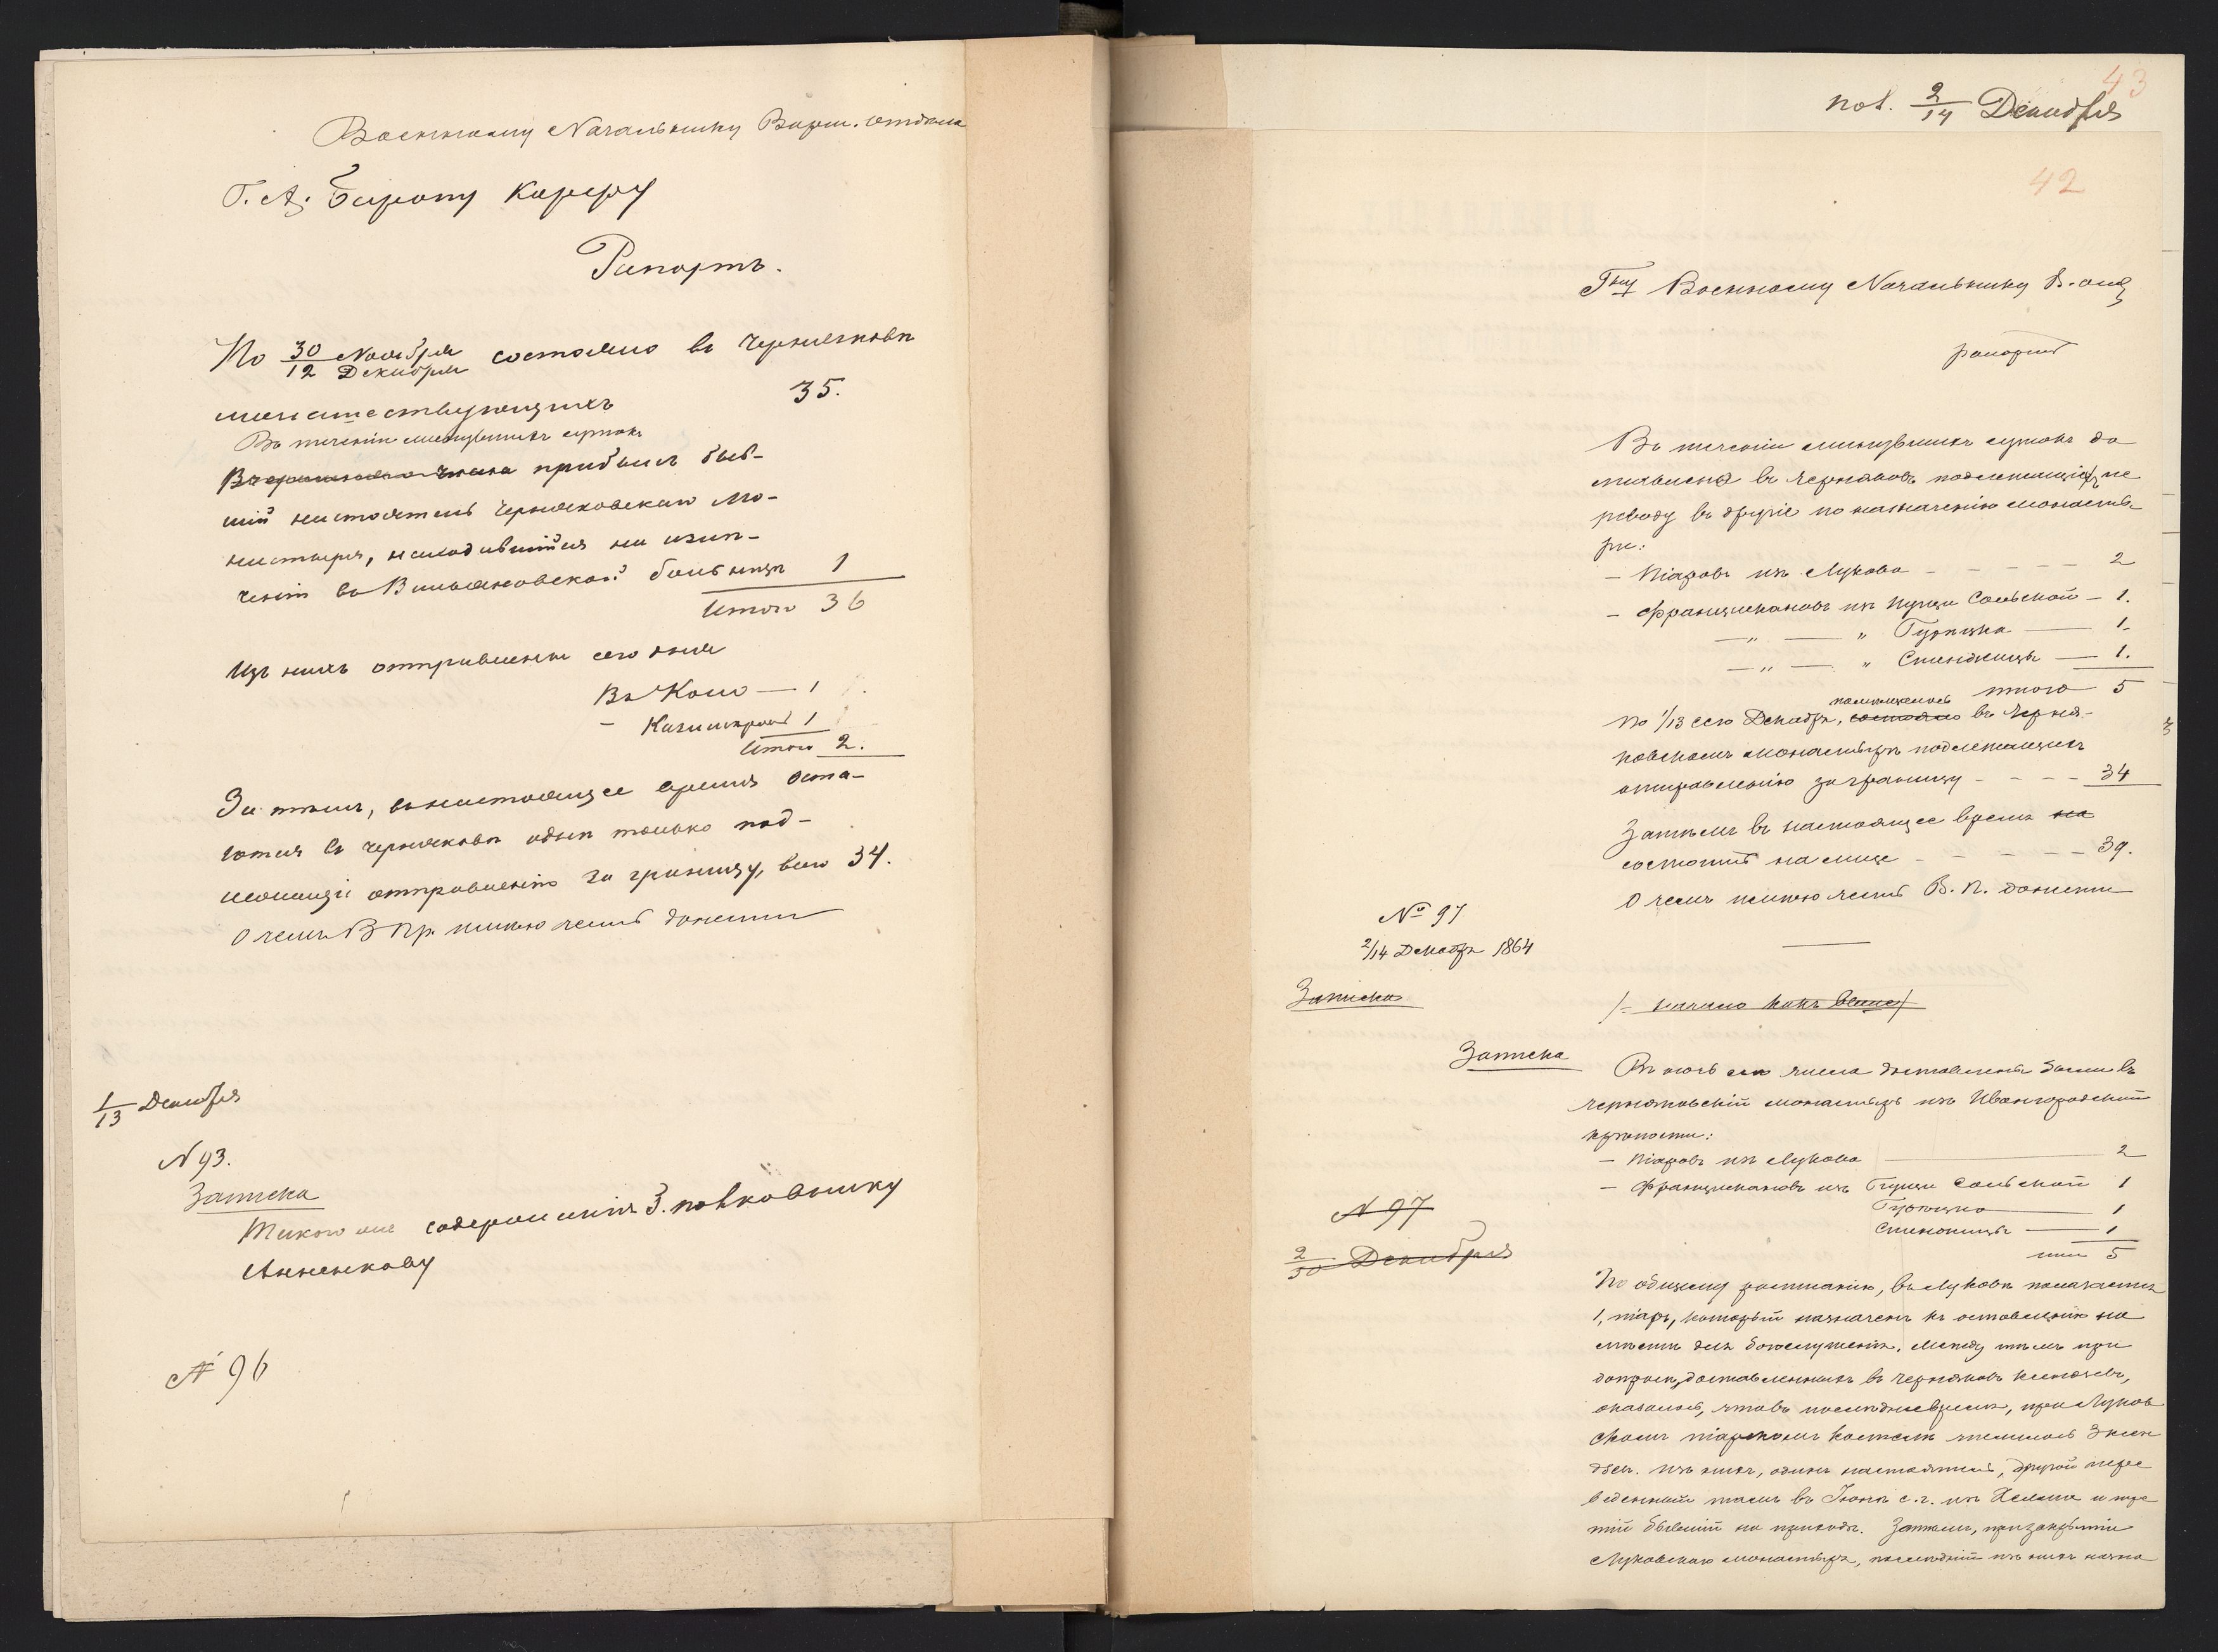 Военному Начальнику Варш. отдела
Г. А. Барону Корфу
Рапортъ.
По 30/12 Ноября/Декабря состояло въ Черняковѣ
монашествующихъ 35.
Въ теченіи минувшихъ сутокъ
прибылъ быв-
шій настоятель Черняковскаго Мо-
настыря, находившійся на излѣ-
ченіи въ Вилановской больницѣ 1
Итого 36
Изъ нихъ отправлены сего дня
Въ Коло — 1
— Казимержъ 1
Итого 2.
За тѣмъ, въ настоящее время оста-
ются въ Черняковѣ одни только под-
лежащіе отправленію за границу, всего 34.
О чемъ В Пр. имѣю честь донести
1/13 Декабря
N 93.
Записка
Такого же содержанія З. полковнику
Анненкову
N 96
43
пол. 2/14 Декабря
42
Гну Военному Начальнику В. отд
рапортъ
Въ теченіи минувшихъ сутокъ до
ставлены въ Черняковъ подлежащіе пе
реводу въ другіе по назначенію монасты-
ри:
— Піяровъ изъ Лукова — — — — 2
— Францискановъ изъ Пущи Сольской — 1.
— „ — „ Гурецка — 1.
— „ — „ Стенжицы — 1.
итого 5
помѣщалось
По 1/13 сего Декабря, состояло въ Черня-
ковскомъ монастырѣ подлежащихъ
отправленію за границу — — — 34
Затѣмъ въ настоящее время на
состоитъ на лицо — — — — 39.
О чемъ имѣю честь В. П. донести
№ 97
2/14 Декабря 1864
Записка
/= начало какъ выше/
Записка
Въ ночь сего числа доставлены были въ
Черняковскій монастырь изъ Ивангородской
крѣпости:
— Піяровъ изъ Лукова 2
— Францискановъ изъ Пущи Сольской 1
Гурецка 1
Стенжицы — 1
5
N 97
2/30 Декабря
По общему росписанію, въ Луковѣ полагается
1, піаръ, который назначенъ къ оставленію на
мѣстѣ для богослуженія. Между тѣмъ при
допросѣ, доставленныхъ въ Черняковъ ксендзовъ,
оказалось, что въ послѣднее время, при Луков
скомъ піарскомъ костелѣ числилось 3 ксен
дза. Изъ нихъ, одинъ настоятель, другой пере
веденный тамъ въ Іюнѣ с. г. изъ Хелма и тре
тій бывшій на приходѣ. Затѣмъ, при закрытіи
Луковскаго монастыря, послѣдній изъ нихъ назна